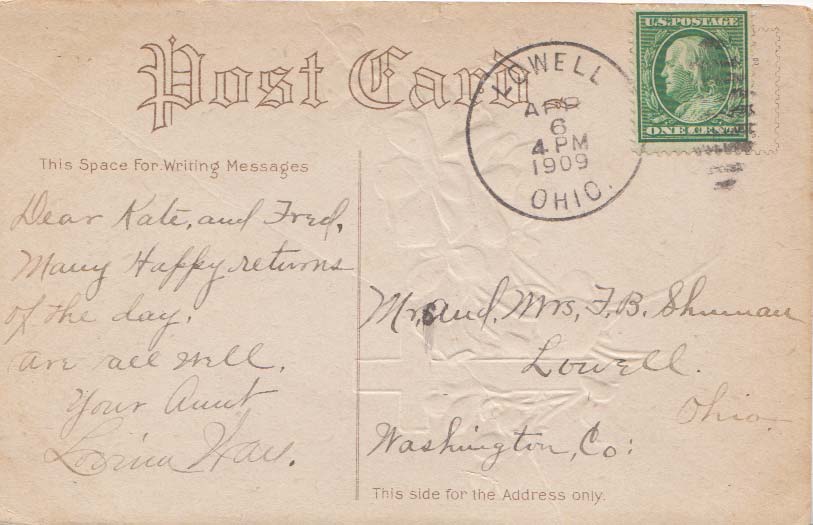 Post Card
This Space For Writing Messages
Dear Kate, and Fred,
Many Happy returns
of the day.
are all well.
Your Aunt
LOWELL
APR
6
4 PM
1909
OHIO.
U.S. POSTAGE
ONE CENT
Mr. and. Mrs, F. B. Shuman
Lowell.
Ohio.
Washington, Co:
This side for the Address only.